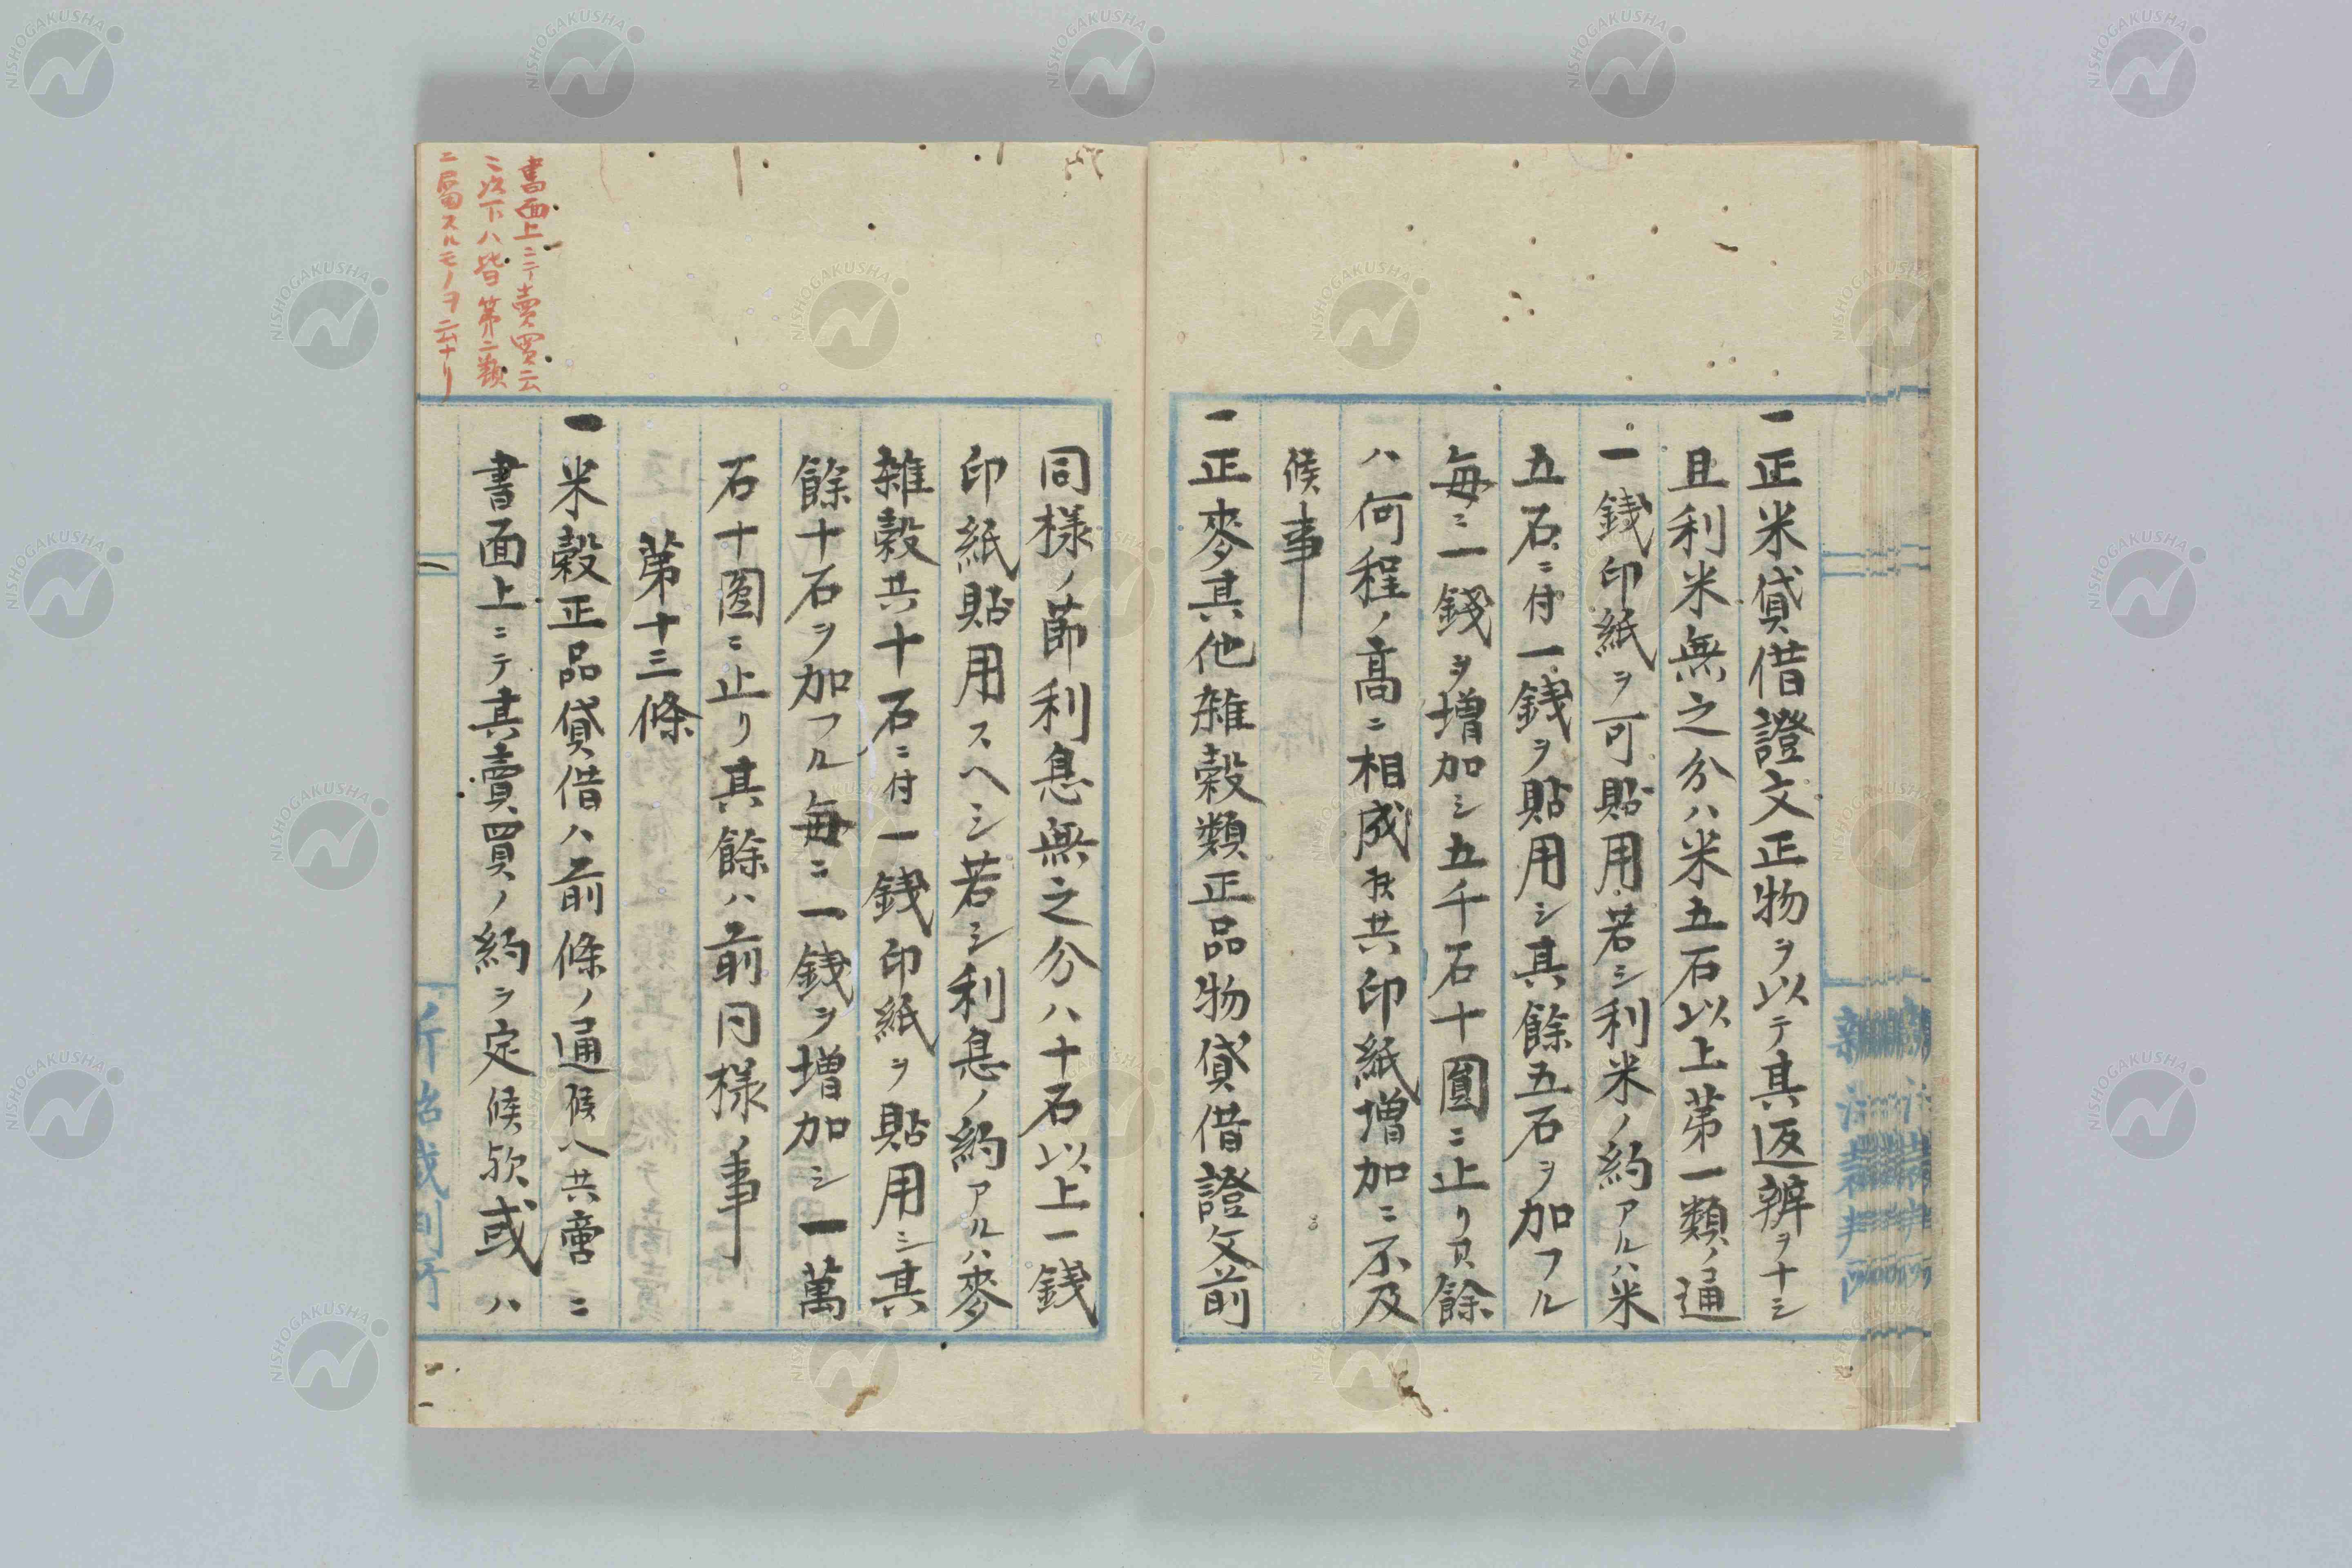 一正米貸借證文正物ヲ以テ其返辨ヲナシ
且利米無之分ハ米五石以上第一類ノ通
一錢印紙ヲ可貼用若シ利米ノ約アルハ米
五石ニ付一錢ヲ貼用シ其餘五石ヲ加フル
每ニ一錢ヲ増加シ五千石十圓ニ止リ其餘
ハ何程ノ高ニ相成候共印紙増加ニ不及
候事
一正麥其他雜穀類正品物貸借證文前
同樣ノ節利息無之分ハ十石以上一錢
印紙貼用スヘシ若シ利息ノ約アルハ麥
雜穀共十石ニ付一錢印紙ヲ貼用シ其
餘十石ヲ加フル每ニ一錢ヲ増加シ一萬
石十圓ニ止リ其餘ハ前同樣ノ事
第十三條
一米穀正品貸借ハ前條ノ通候ヘ共啻ニ
書面上ニテ其賣買ノ約ヲ定候歟或ハ
書面上ニテ賣買云
ニ以下ハ皆第二類
ニ屬スルモノヲ云ナリ
NISHOGAKUSHA